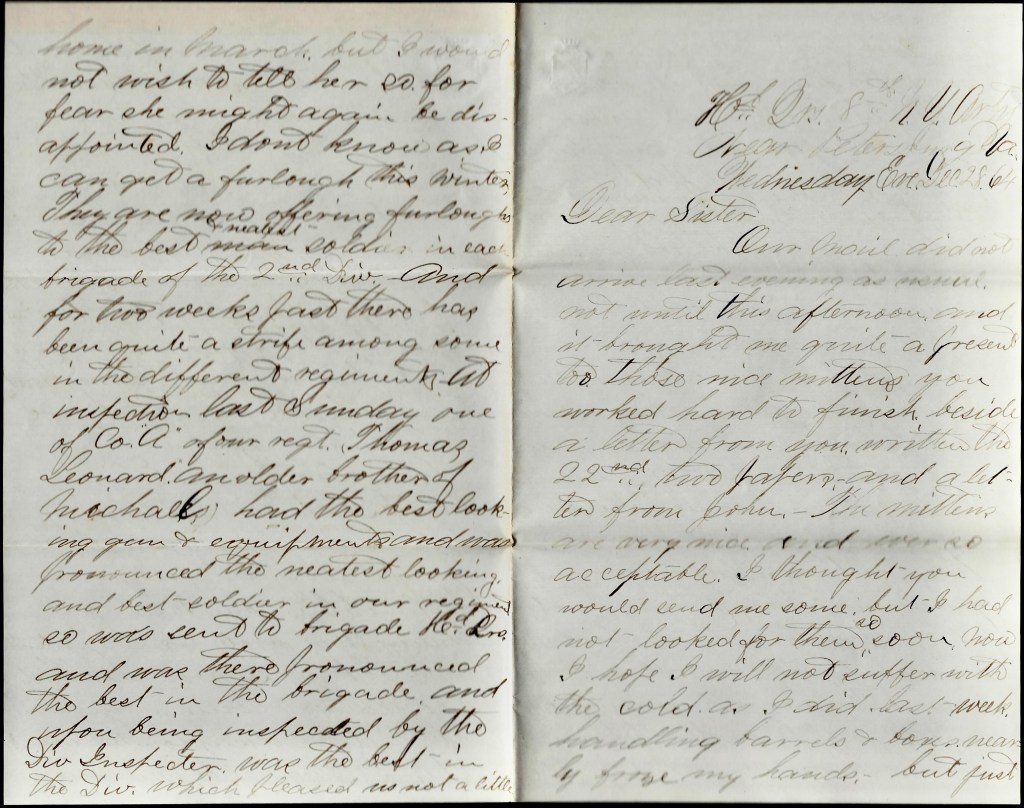 home in March, but I would
not wish to tell her so for
fear she might again be dis-
appointed. I dont know as I
can get a furlough this winter,
They are now offering furloughs
to the best & neatest man soldier in each
brigade of the 2nd Div. - And
for two weeks past there has
been quite a strife among some
in the different regiments. At
inspection last Sunday one
of Co. "A" of our regt. Thomas
Leonard. (an older brother of
Michaels) had the best look-
ing gun & equipments and was
pronounced the neatest looking.
and best soldier in our regiment
so was sent to brigade Hd. Qrs.
and was there pronounced
the best in the brigade. and
upon being inspected by the
Div Inspecter. was the best in
the Div. which pleased us not a little
Hd. Qrs. 8th N. Y. Arty
Near Petersburg Va.
Wednesday Eve. Dec 28. 64
Dear Sister
Our Mail did not
arrive last evening as usual.
not until this afternoon. and
it brought me quite a present
too those nice mittens you
worked hard to finish. beside
a letter from you, written the
22nd, two papers. and a let-
ter from John. - The mittens
are very nice. and ever so
acceptable. I thought you
would send me some. but I had
not looked for them so soon. Now
I hope I will not suffer with
the cold. as I did last week.
handling barrels & boxes near-
ly froze my hands. - but just